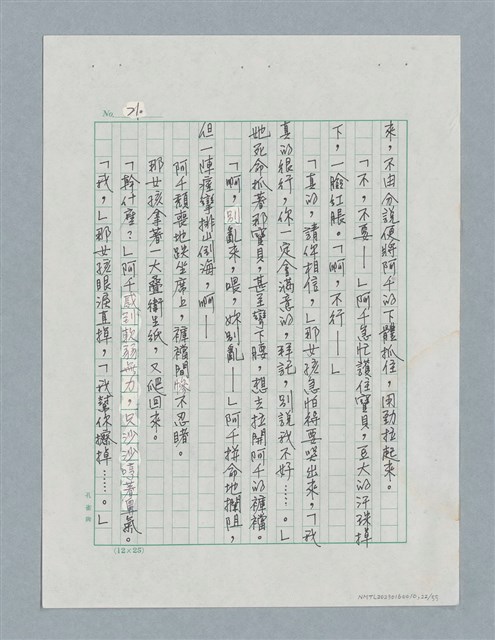 No. 21.
來，不由分說便將阿千的下體抓住，用勁拉起來。
「不，不要——」阿千急忙護住寶貝，豆大的汗珠掉
下，一臉紅脹。「啊，不行——」
「真的，請你相信，」那女孩急怕得要哭出來，「我
真的很行，你一定會滿意的，拜託，別說我不好……。」
她死命抓著那寶貝，甚至彎下腰，想去拉開阿千的褲襠。
「啊，別亂來，喂，妳別亂——」阿千拼命地攔阻，
但一陣痙攣排山倒海，啊——
阿千頹喪地跌坐席上，褲襠間慘不忍睹。
那女孩拿著一大疊衛生紙，又爬回來。
「幹什麼？」阿千感到軟弱無力，只沙沙哼著鼻氣。
「我，」那女孩眼淚直掉，「我幫你擦掉……。」
(12×25)
NMTL20230180010,22/53